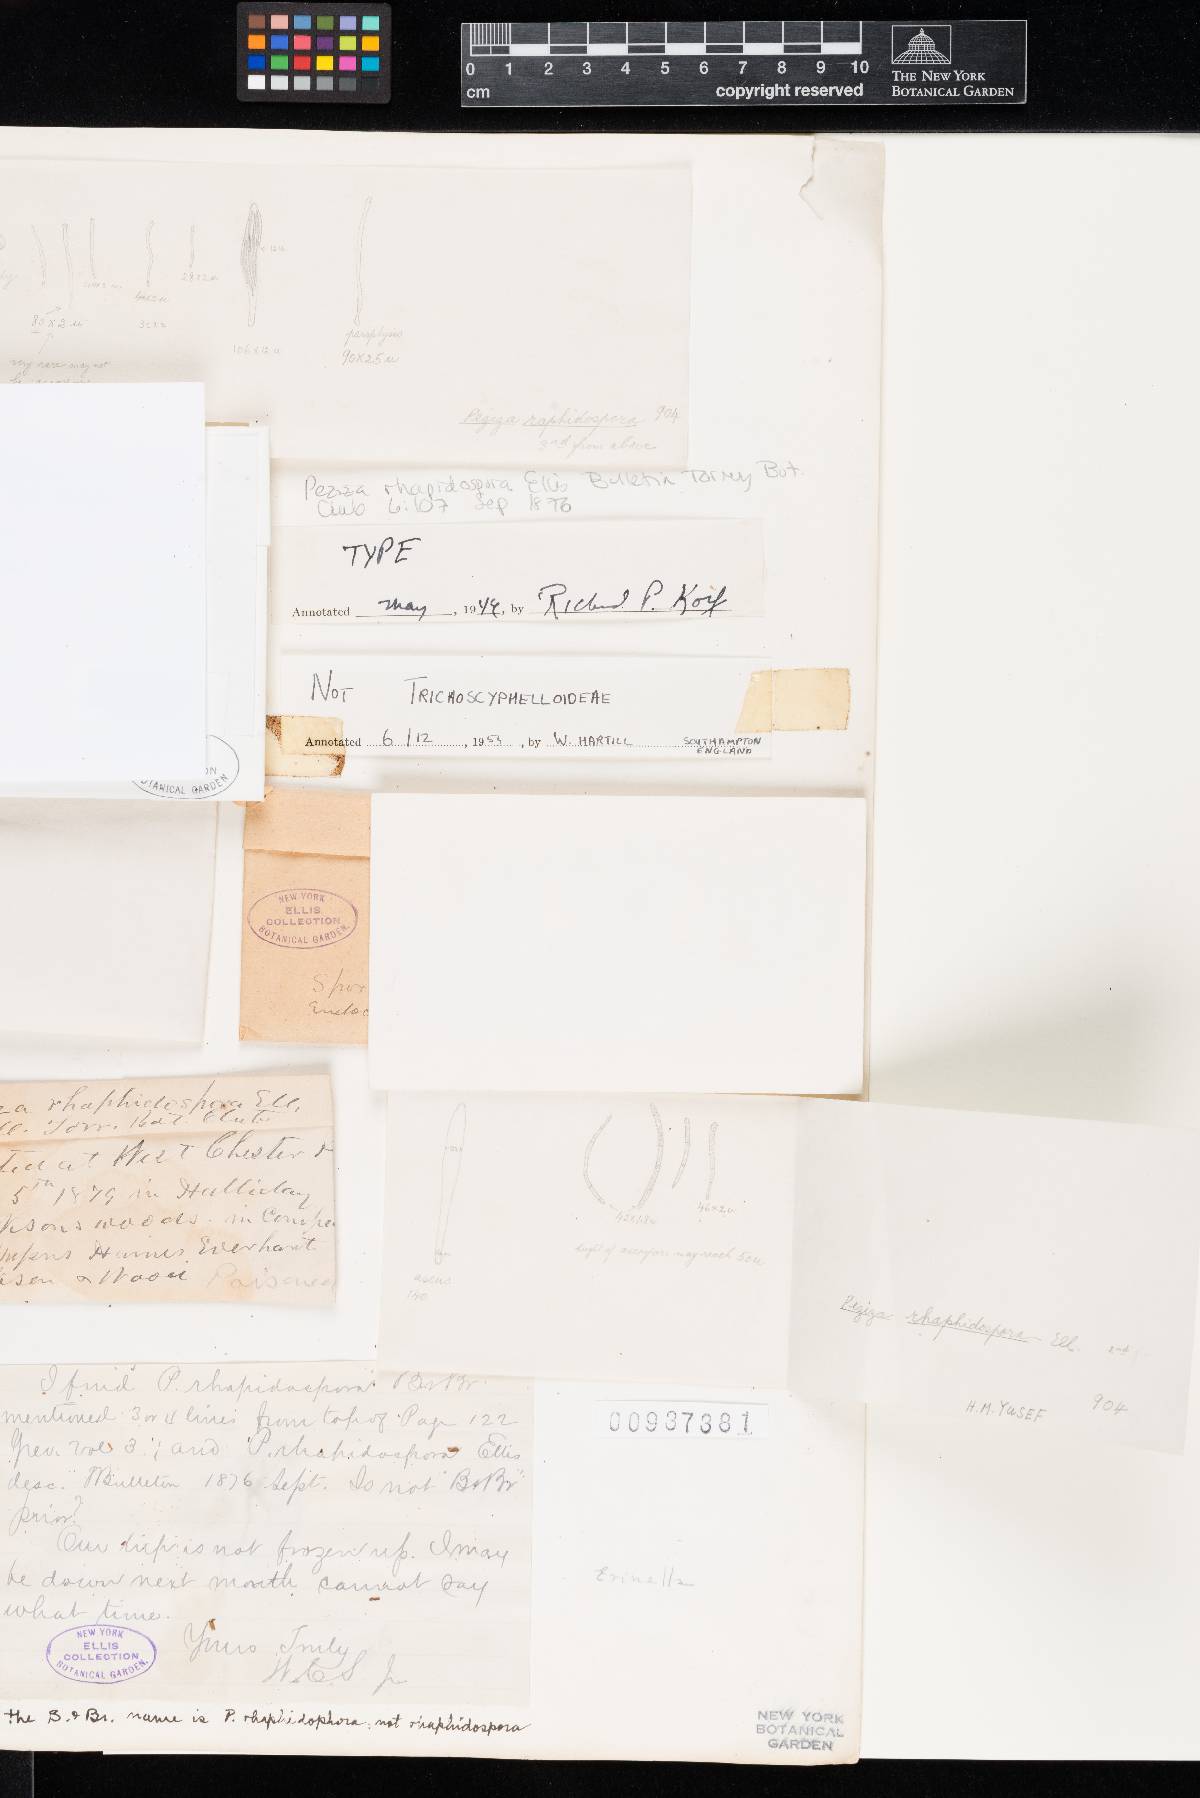 0 1 2 3 4 5 6 7 8 9 10
cm
copyright reserved
THE NEW YORK
BOTANICAL GARDEN
28x2u
80 x 2 u
106x12 u
paraphysis
90x2.5 u
very rare may not
Peziza raphidospora 904
3rd from above
Peziza rhapidospora Ellis Bulletin Torrey Bot.
Club 6:107 Sep 1876
TYPE
Annotated May, 1949, by Richard P. Korf
NOT TRICHOSCYPHELLOIDEAE
Annotated 6/12, 1954, by W. HARTILL SOUTHAMPTON
ENGLAND
BOTANICAL GARDEN
NEW YORK
ELLIS
COLLECTION
BOTANICAL GARDEN.
Spor
za rhaphidospora Ell.
Torr. Bot. Club
at West Chester
5th 1879 in Halliday
ksons woods in Compa
Haines Everhart
& Wood
ascus
140
46x2u
length of ascospore may reach 50u
Peziza rhaphidospora Ell. 2nd
H.M. YUSEF 904
I find P. rhapidospora B&Br.
mentioned 3 or 4 lines from top of Page 122
Grev. vol 3; and P. rhapidospora Ellis
desc. Bulletin 1876 Sept. Is not B&Br
prior?
Our is not frozen up. I may
be down next month cannot say
what time.
Yours Truly
W.C.S. Jr
00937381
Erinella
NEW YORK
ELLIS
COLLECTION
BOTANICAL GARDEN.
the B. & Br. name is P. rhaphidophora, not rhaphidospora
NEW YORK
BOTANICAL
GARDEN